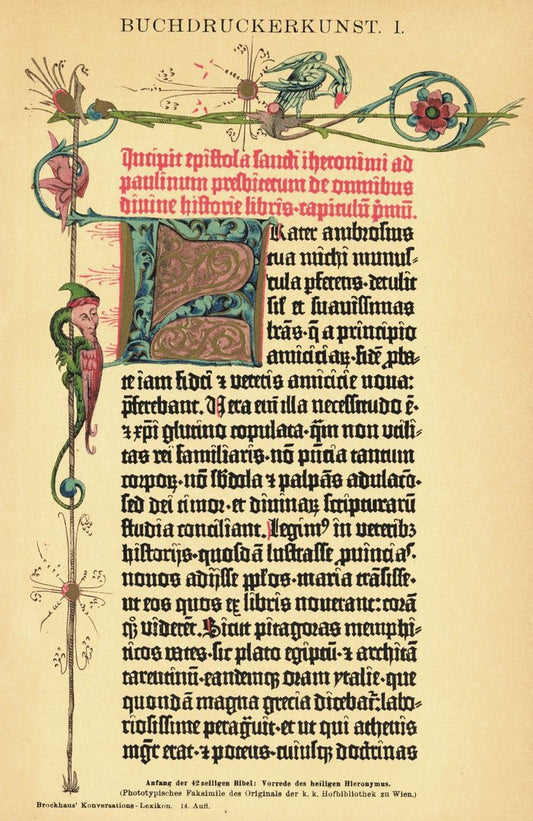 BUCHDRUCKERKUNST. I.
Incipit epistola sancti iheronimi ad
paulinum presbiterum de omnibus
divine historie libris·capitulū p̄mū.
Frater ambrosius
tua michi munus-
cula pferens·detulit
sil' et suavissimas
lr̄as·q̄ a principio
amiciciaꝝ·fidē pba-
te iam fidei ⁊ veteris amicicie nova:
p̄ferebant. Vera em̄ illa necessitudo ē·
⁊ xp̄i glutino copulata·q̄m non utili-
tas rei familiaris·nō pn̄cia tantum
corpoꝝ·nō sb̄dola ⁊ palpās adulaco·
sed dei timor·et divinaꝝ scripturarū
studia conciliant. Legim⁹ in veteribꝫ
historijs·quosdā lustrasse ꝓvincias·
novos adijsse pp̄los·maria trāsisse·
ut eos quos ex libris noverant: corā
qꝫ viderēt. Sicut pitagoras memphi-
ticos vates·sic plato egiptū·⁊ architā
tarentinū·eandemqꝫ oram ytalie·que
quondā magna grecia dicebat᷑: labo-
riosissime peragͣvit·et ut qui athenis
mgr̄ erat·⁊ potens·cuiusqꝫ doctrinas
Anfang der 42zeiligen Bibel: Vorrede des heiligen Hieronymus.
(Phototypisches Faksimile des Originals der k. k. Hofbibliothek zu Wien.)
Brockhaus' Konversations-Lexikon. 14. Aufl.